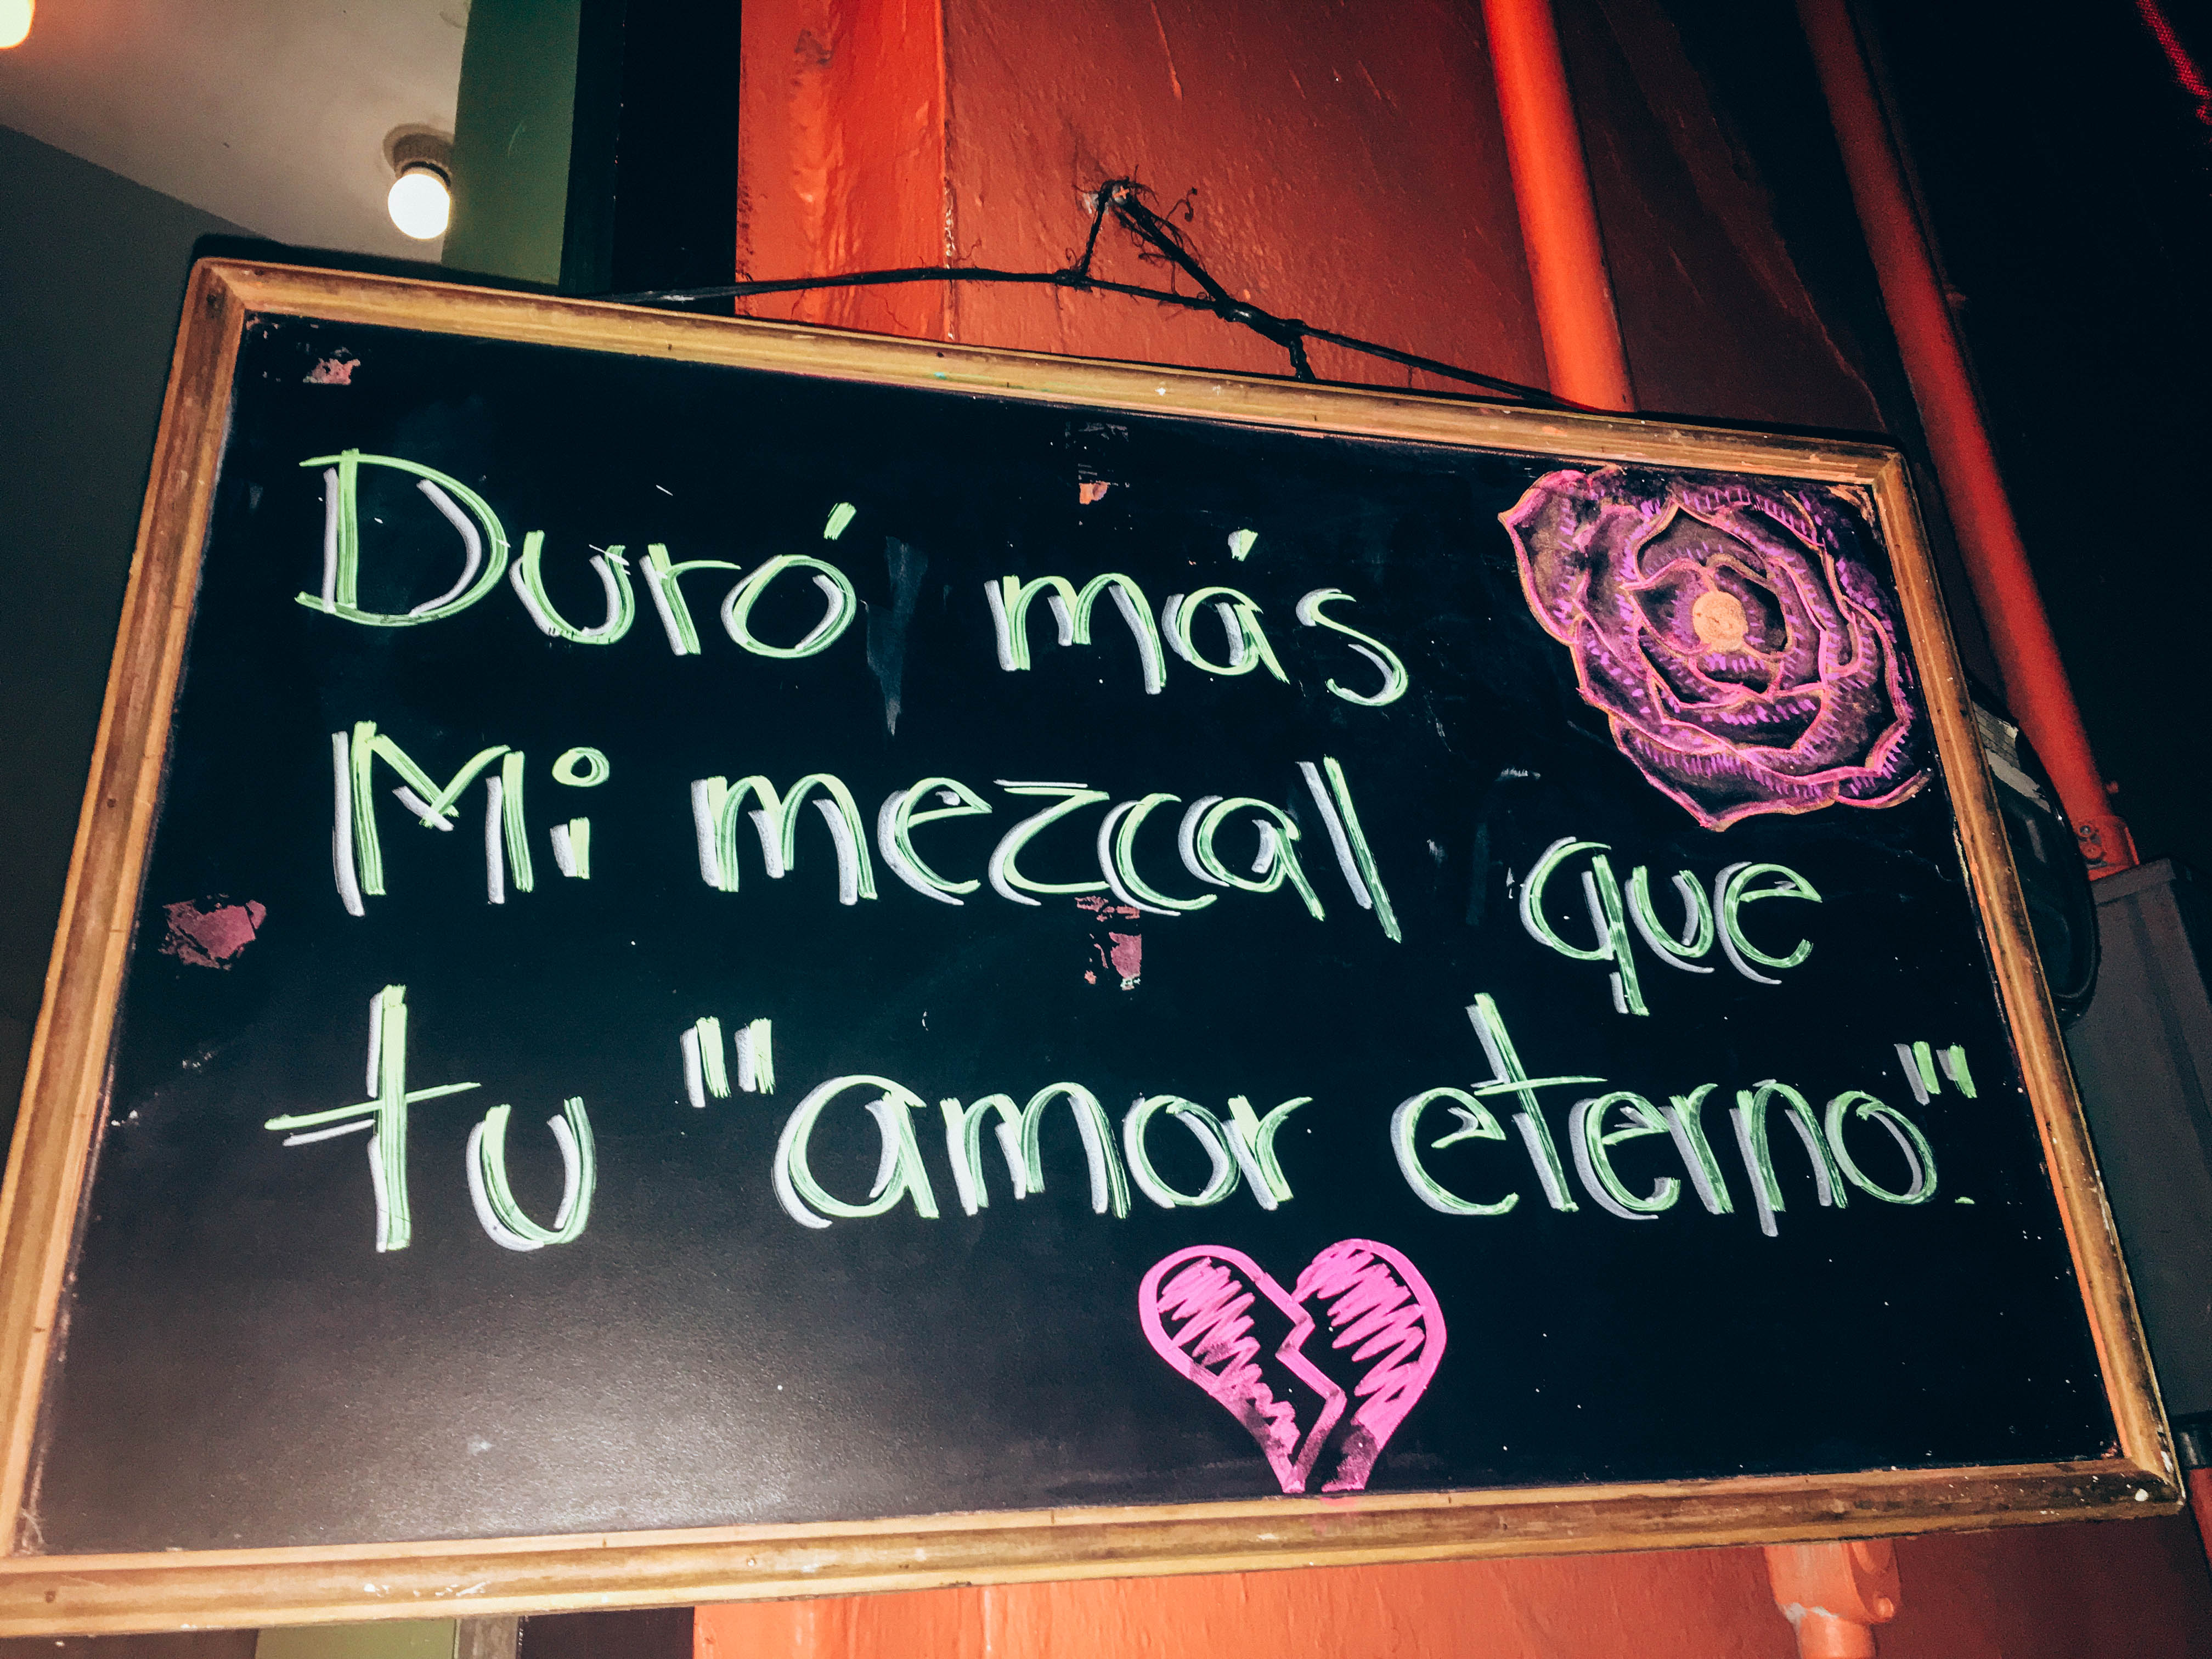 Duró más
Mi mezcal que
tu "amor eterno".